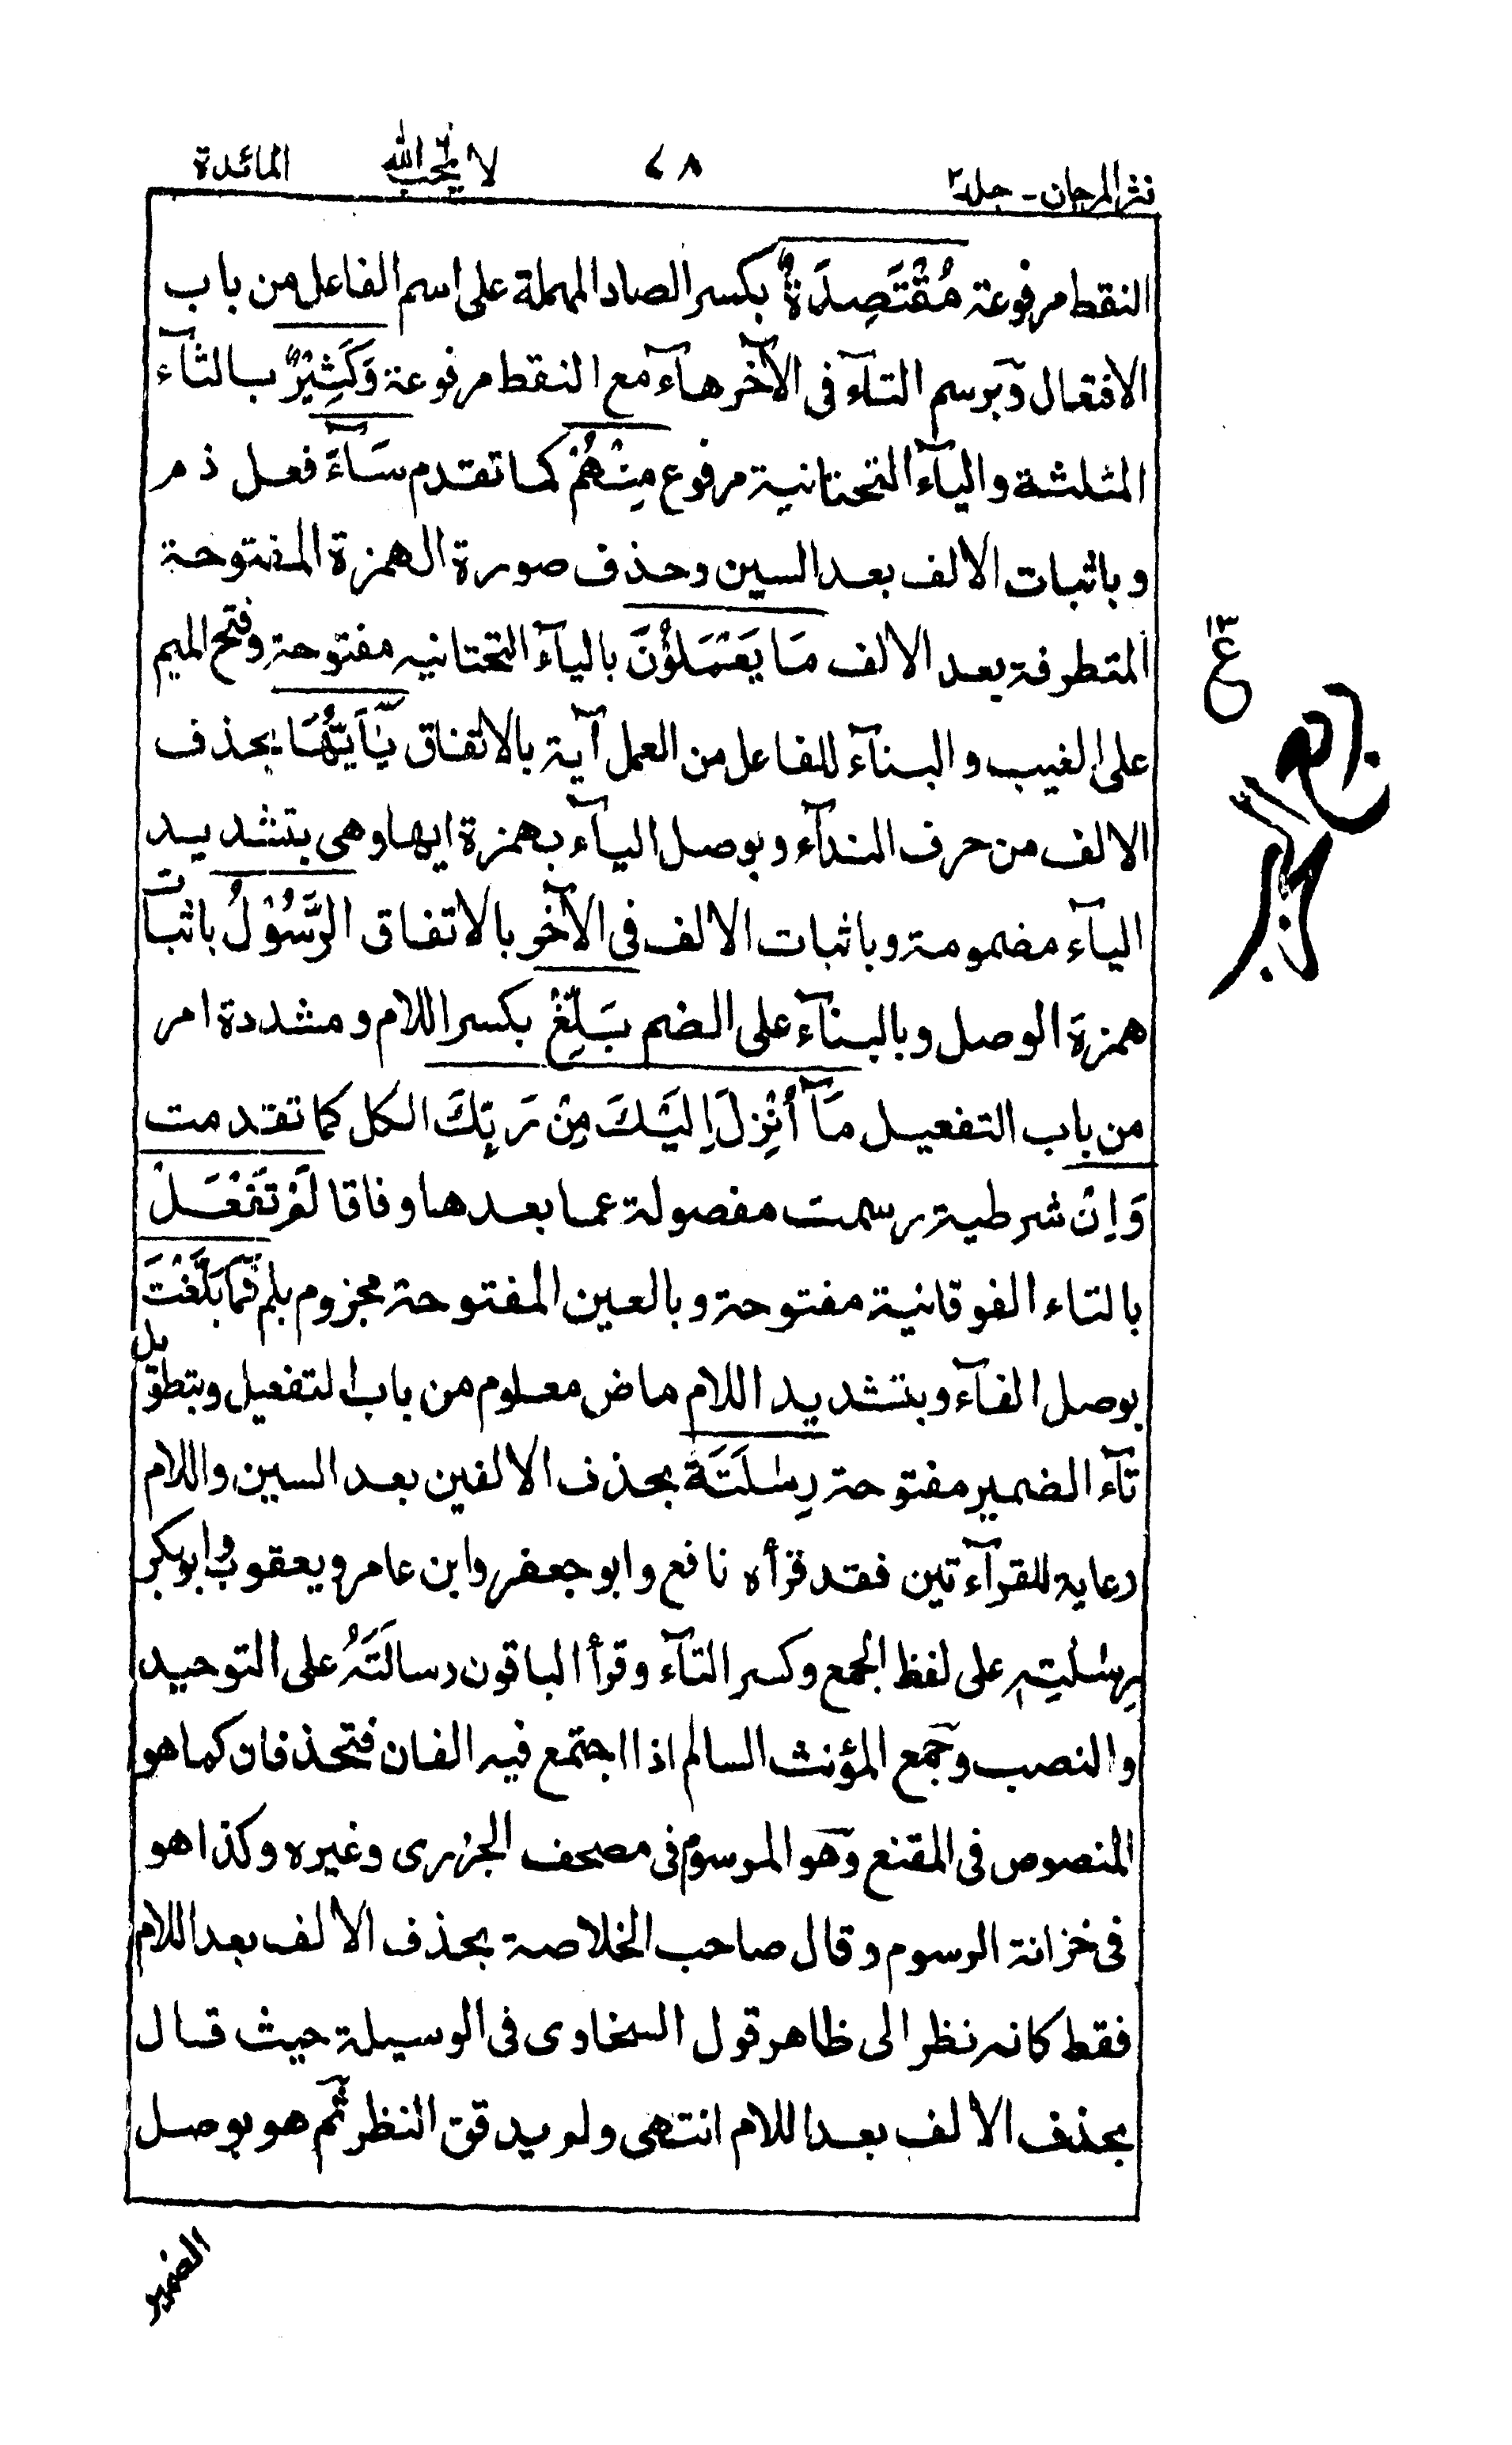 نثر المرجان - جلد ٢ ٧٨ لا يحب الله المائدة
النقط مرفوعة مُقْتَصِدَةٌ بكسر الصاد المهملة على اسم الفاعل من باب
الافتعال وبرسم التآء فى الآخر هآء مع النقط مرفوعة وَكَثِيْرٌ بالثآء
المثلثة واليآء التحتانية مرفوع مِنْهُمْ كما تقدم سَآءَ فعل ذم
وباثبات الالف بعد السين وحذف صورة الهمزة المفتوحة
المتطرفة بعد الالف مَا يَعْمَلُوْنَ باليآء التحتانيه مفتوحة وفتح الميم
على الغيب والبنآء للفاعل من العمل آية بالاتفاق يٰٓاَيُّهَا بحذف
الالف من حرف الندآء وبوصل اليآء بهمزة ايها وهى بتشديد
اليآء مضمومة وباثبات الالف فى الآخر بالاتفاق الرَّسُوْلُ باثبات
همزة الوصل وبالبنآء على الضم بَلِّغْ بكسر اللام ومشددة امر
من باب التفعيل مَآ أُنْزِلَ اِلَيْكَ مِنْ رَبِّكَ الكل كما تقدمت
وَاِنْ شرطية رسمت مفصولة عما بعدها وفاقا لَمْ تَفْعَلْ
بالتاء الفوقانية مفتوحة وبالعين المفتوحة مجزوم بلم فَمَا بَلَّغْتَ
بوصل الفآء وبتشديد اللام ماض معلوم من باب التفعيل وبتطويل
تآء الضمير مفتوحة رِسٰلَتَهُ بحذف الالفين بعد السين واللام
رعاية للقرآءتين فقد قرأه نافع وابو جعفر وابن عامر ويعقوب وابو بكر
رِسٰلٰتِهٖ على لفظ الجمع وكسر التآء وقرأ الباقون رسالَتَهُ على التوحيد
والنصب وجمع المؤنث السالم اذا اجتمع فيه الفان فتحذفان كما هو
المنصوص فى المقنع وهو المرسوم فى مصحف الجزرى وغيره وكذا هو
فى خزانة الرسوم وقال صاحب الخلاصة بحذف الالف بعد اللام
فقط كانه نظر الى ظاهر قول السخاوى فى الوسيلة حيث قال
بحذف الالف بعد اللام انتهى ولم يدقق النظر ثم هو بوصل
الضمير
١٣
ع